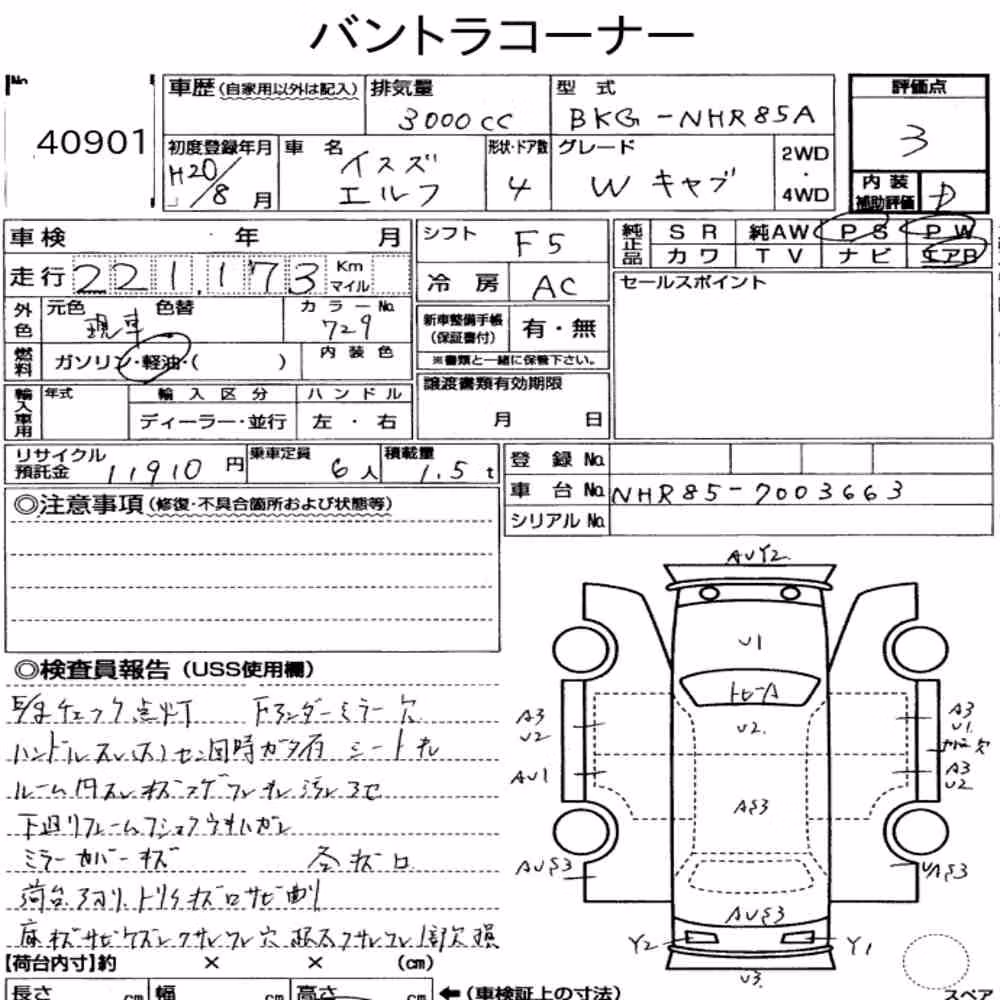 バントラコーナー
No.
40901
車歴(自家用以外は記入)
排気量
3000cc
型式
BKG-NHR85A
評価点
3
初度登録年月
H20/8月
車名
イスズ
エルフ
形状・ドア数
4
グレード
Wキャブ
2WD
・
4WD
内装
補助評価
D
車検 年 月
シフト
F5
純正品
SR 純AW PS PW
カワ TV ナビ エアB
走行 221,173 Km マイル
冷房
AC
セールスポイント
外色
元色 色替
現車
カラーNo.
729
新車整備手帳
(保証書付)
有・無
※書類と一緒に保管下さい。
燃料
ガソリン・軽油・( )
内装色
譲渡書類有効期限
月 日
輸入車用
年式
輸入区分
ディーラー・並行
ハンドル
左・右
リサイクル
預託金
11910円
乗車定員
6人
積載量
1.5t
登録No.
車台No. NHR85-7003663
シリアルNo.
◎注意事項(修復・不具合箇所および状態等)
◎検査員報告(USS使用欄)
チェック点灯 アンダーミラー欠
ハンドルスレ シート
ルーム内スレキズ コゲ
下廻りフレーム
ミラーカバーキズ 各キズ凹
荷台アオリ トリイキズ凹サビ
床キズサビ
AUY2
U1
トヒーA
U2
A3
U2
AU1
A3
U1
欠
A3
U2
AS3
AUS3
UAS3
AUS3
Y2
Y1
U3
【荷台内寸】約 × × (cm)
長さ cm 幅 cm 高さ cm ←(車検証上の寸法)
スペア